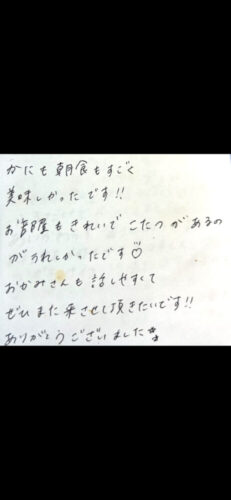 かにも朝食もすごく
美味しかったです!!
お部屋もきれいで こたつがあるの
がうれしかったです♡
おかみさんも 話しやすくて
ぜひまた来させて頂きたいです!!
ありがとうございました